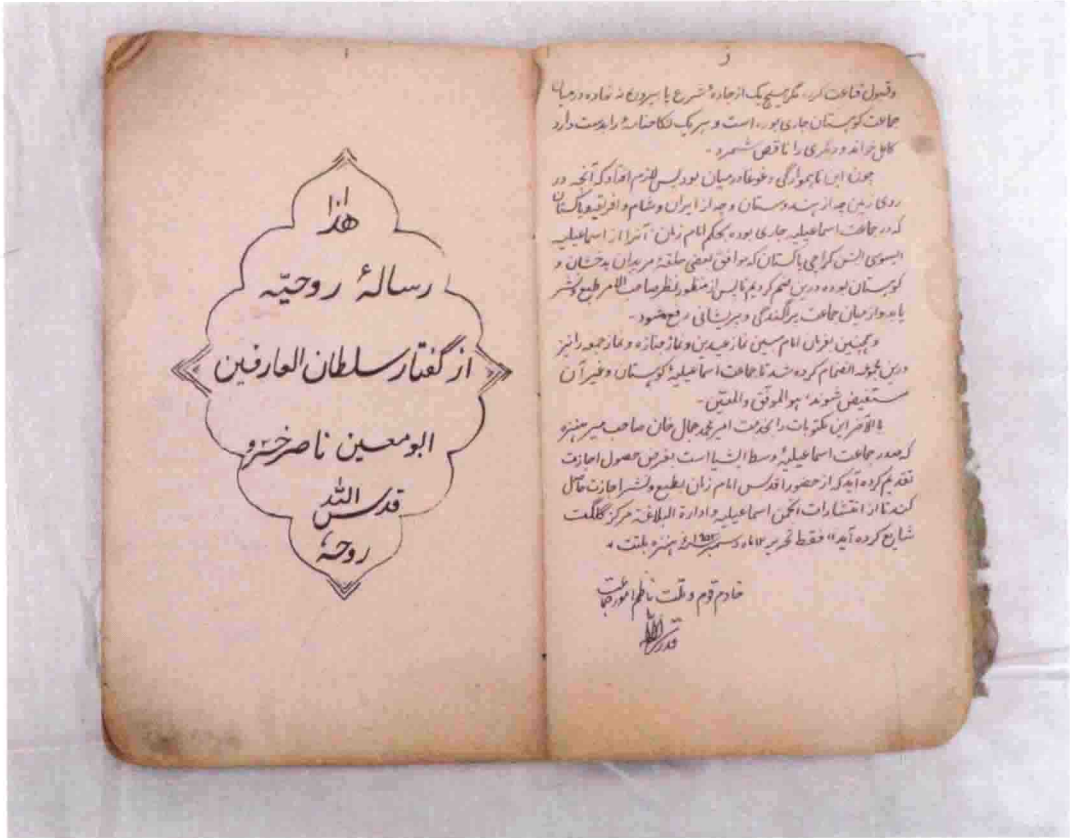 و قبول قناعت کرد، مگر هیچ یک از جادهٔ شرع پا بیرون نه نهاده در میان
جماعت کوهستان جاری بوده است و هر یک نکاحنامهٔ را بدست دارد
کامل خواند و دیگری را ناقص شمرد۔
چون این ناهمواری و غوغا در میان بود لیس لازم افتاد که آنچه در
روی زمین چه از هندوستان و چه از ایران و شام و افریقه و پاکستان
که در جماعت اسماعیلیه جاری بوده بحکم امام زمان آنرا از اسماعیلیه
ایسوسی ایشن کراچی پاکستان که موافق بعضی حلقهٔ مریدان بدخشان و
کوهستان بوده درین ضم کردیم تا پس از منظور نظر صاحب الامر طبع و نشر
یابد و از میان جماعت پراگندگی و پریشانی رفع شود۔
و همچنین بفرمان امام مبین نماز عیدین و نماز جنازه و نماز جمعه را نیز
درین مجموعه انضمام کرده شد تا جماعت اسماعیلیهٔ کوهستان و غیر آن
مستفیض شوند، هو الموفق والمعین۔
بالآخر این مکتوبات را بخدمت امیر محمد جمال خان صاحب میر هنزه
که صدر جماعت اسماعیلیهٔ وسط ایشیا است بغرض حصول اجازت
تقدیم کرده آید که از حضور اقدس امام زمان بطبع و نشر اجازت حاصل
کند تا از انتشارات انجمن اسماعیلیه و ادارة البلاغه مرکز گلگت
شایع کرده آید، فقط تحریر ۱۲ ماه دسمبر هنزه بلتت
خادم قوم و ملت ناظم امور جماعت
ا
هذا
رسالهٔ روحیّه
از گفتار سلطان العارفین
ابو معین ناصر خسرو
قدس الله
روحهٗ